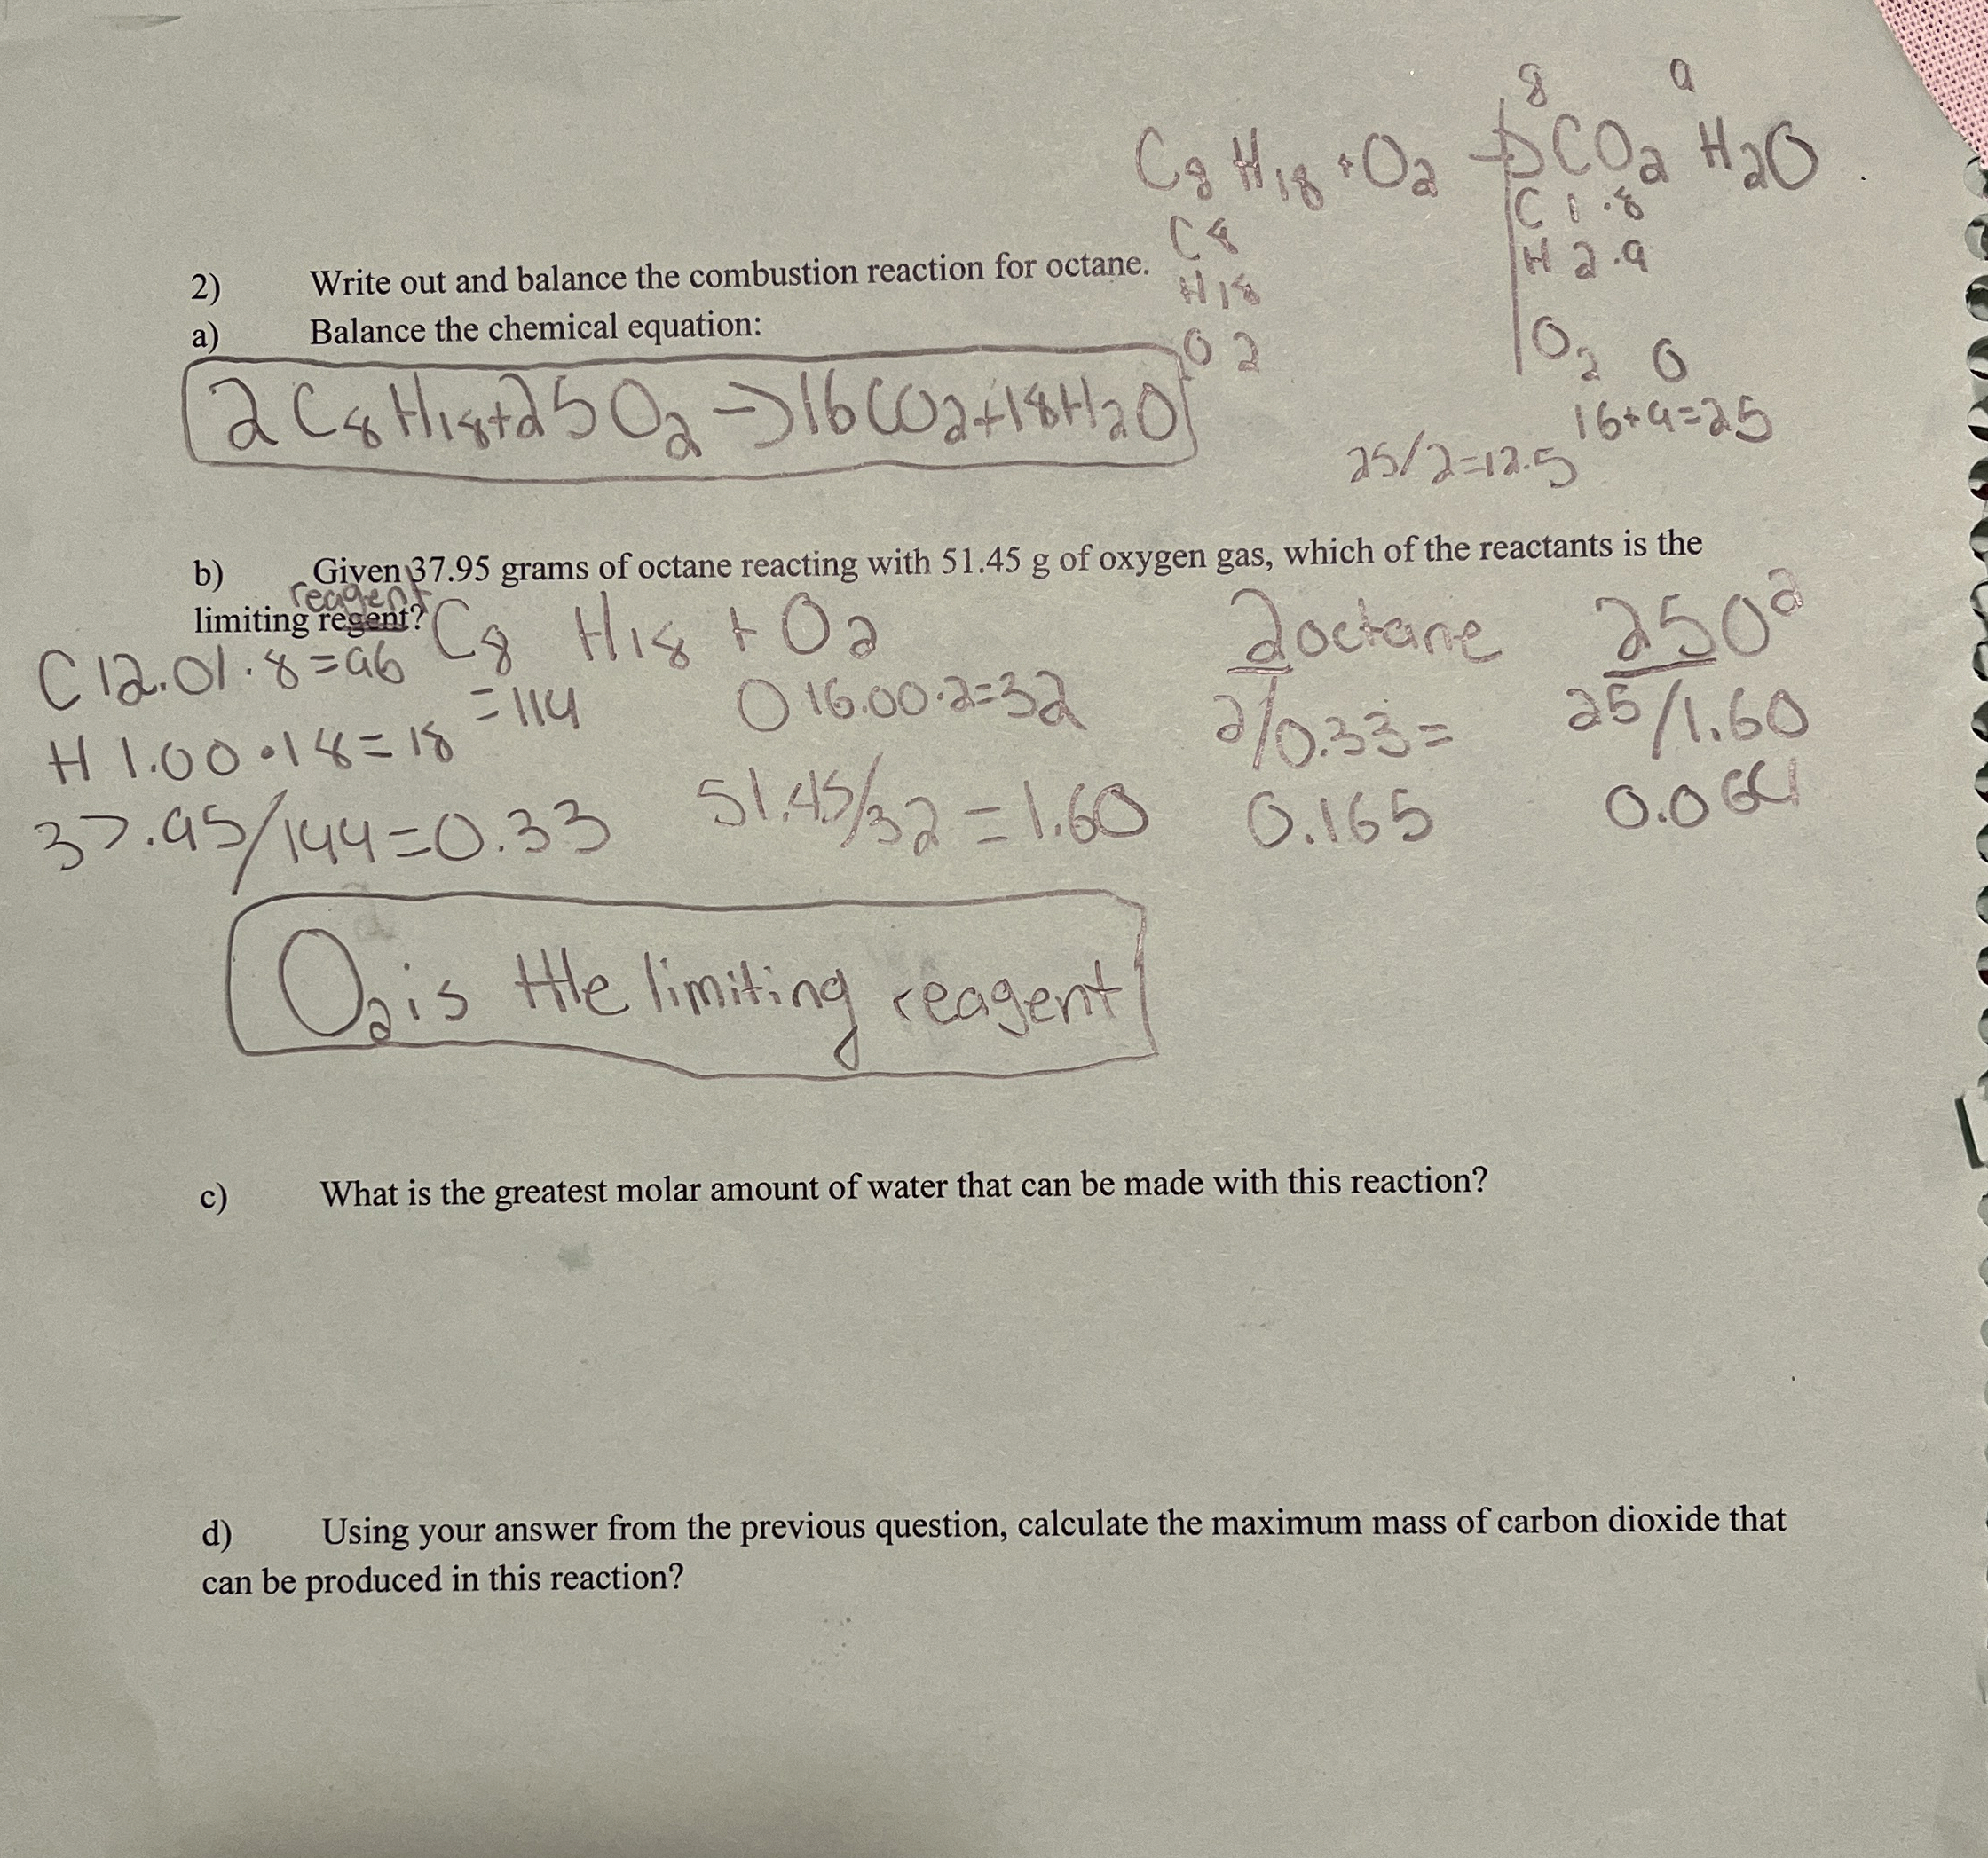 8 9
C8 H18 + O2 → CO2 H2O
C 1 . 8
C 8
H 2 . 9
2) Write out and balance the combustion reaction for octane.
H 18
a) Balance the chemical equation:
O 2
O2 O
2 C8 H18 + 25 O2 → 16 CO2 + 18 H2O
16 + 9 = 25
25/2 = 12.5
b) Given 37.95 grams of octane reacting with 51.45 g of oxygen gas, which of the reactants is the
reagent
limiting regent?
C8 H18 + O2
2 octane 25 O2
C 12.01 . 8 = 96
= 114
O 16.00 . 2 = 32
2/0.33 =
25/1.60
H 1.00 . 18 = 18
37.95/144 = 0.33
51.45/32 = 1.60
0.165
0.064
O2 is the limiting reagent
c) What is the greatest molar amount of water that can be made with this reaction?
d) Using your answer from the previous question, calculate the maximum mass of carbon dioxide that
can be produced in this reaction?